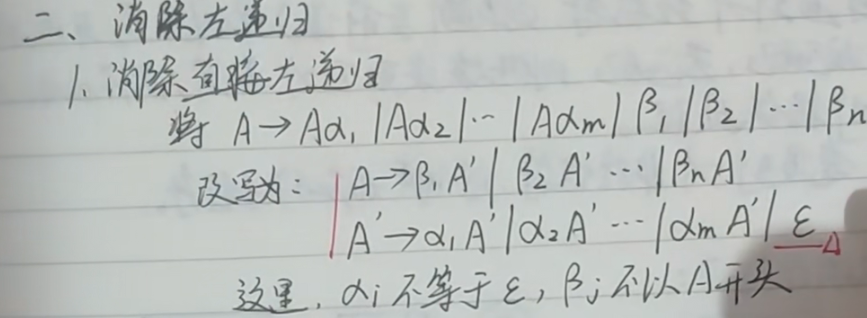 二、消除左递归
1、消除直接左递归
将 A→Aα₁|Aα₂|…|Aαm|β₁|β₂|…|βn
改写为: A→β₁A'|β₂A'…|βnA'
A'→α₁A'|α₂A'…|αmA'|ε
这里, αi不等于ε, βj不以A开头